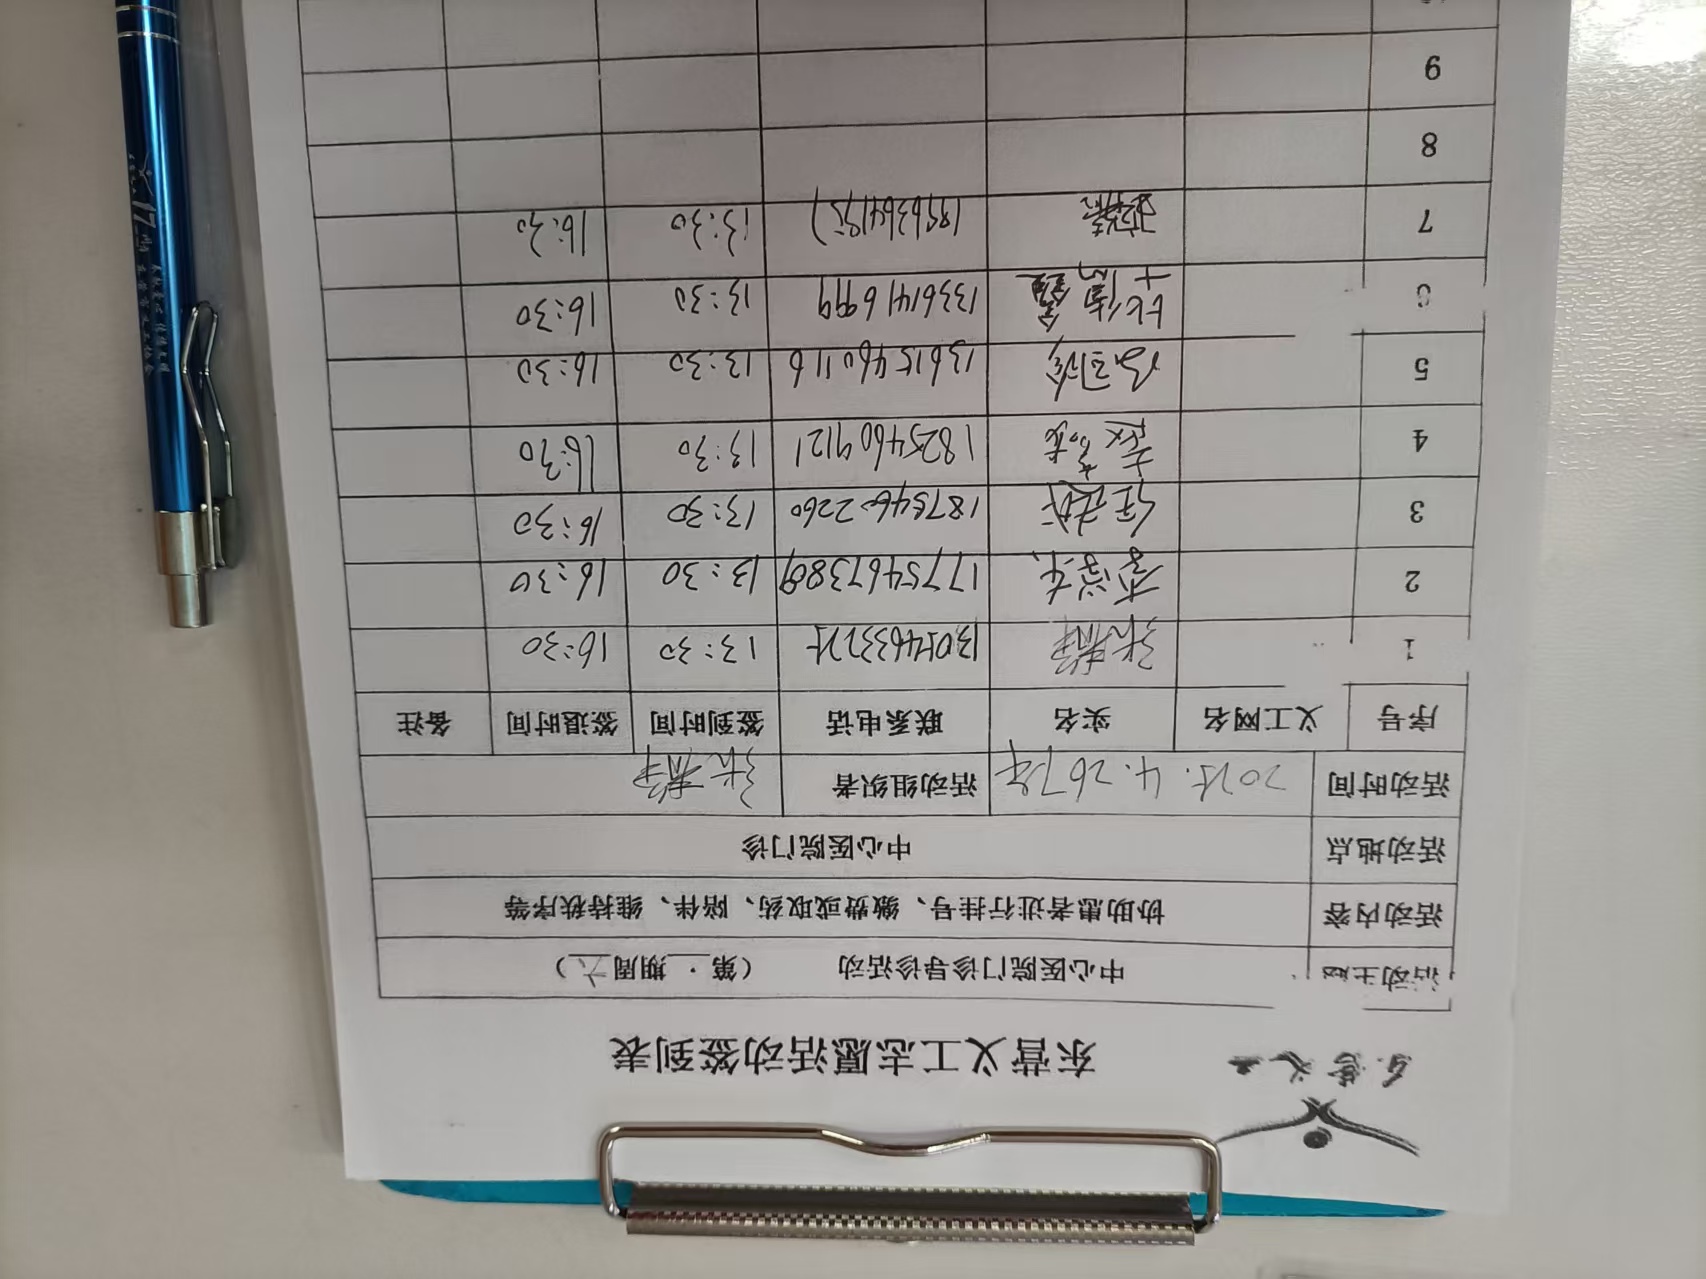 东营义工
东营义工志愿活动签到表
活动主题 中心医院门诊导诊活动 （第 期周六）
活动内容 协助患者进行挂号、缴费或取药、陪伴、维持秩序等
活动地点 中心医院门诊
活动时间 2025.4.26下午 活动组织者 张
序号 义工网名 实名 联系电话 签到时间 签退时间 备注
1 张 13:30 16:30
2 17754673889 13:30 16:30
3 任 18754602260 13:30 16:30
4 18254609121 13:30 16:30
5 13615460116 13:30 16:30
6 13361416999 13:30 16:30
7 13:30 16:30
8
9
17